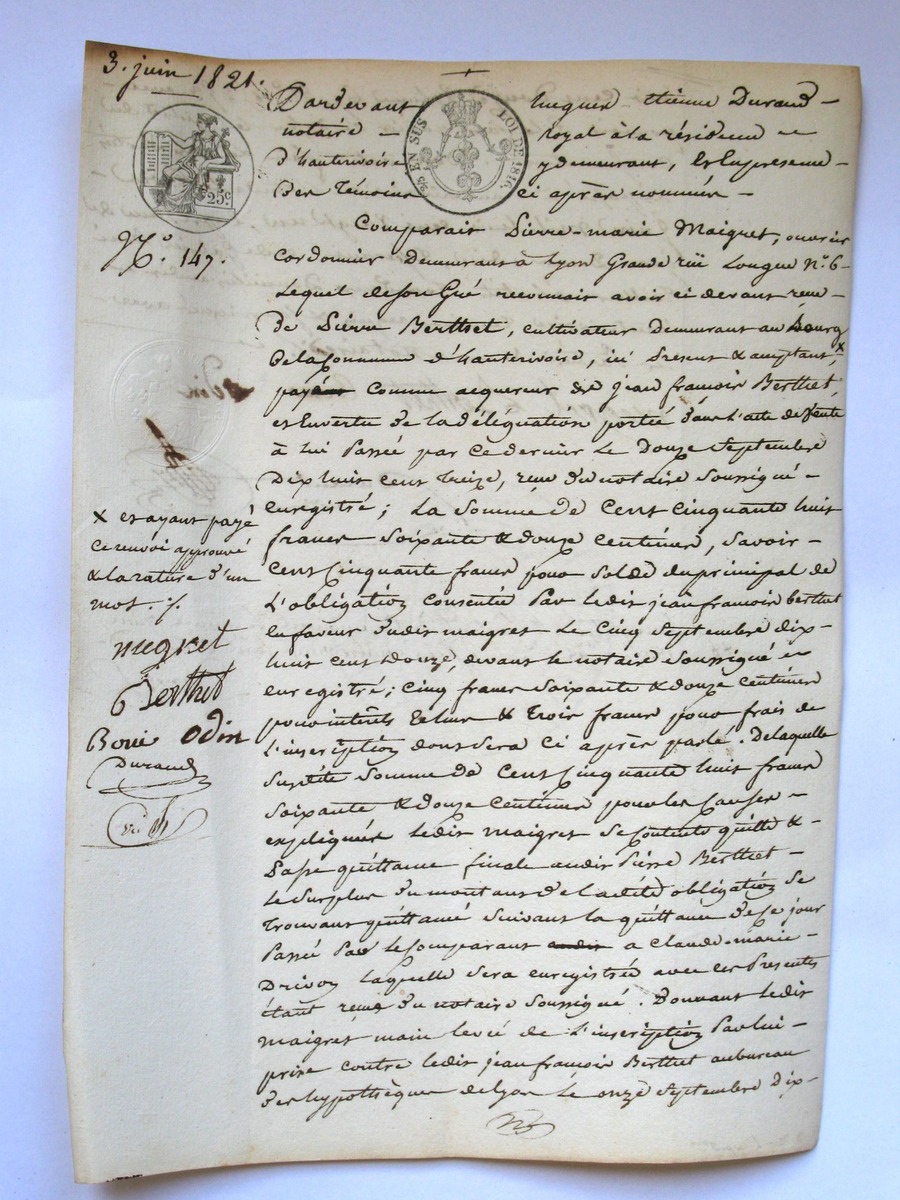 3. juin 1821.
Pardevant hugues etienne Durand -
notaire - royal à la résidence -
d'hauterivoire y demeurant, & En presence -
Des Témoins ci après nommés -
EN SUS LOI DE 1816.
25c
N.o 147.
Comparait Pierre-marie Maigret, ouvrier
Cordonnier Demeurant à Lyon Grande rüe Longue N.o 6 -
Lequel de son Gré reconnait avoir ci devant recu -
De Pierre Berthet, cultivateur Demeurant au Bourg
De la Commune d'hauterivoire, ici Present & acceptant, x
payé comme acquereur de jean francois Berthet
et En vertu De la délégation portée dans l'acte de Vente
à lui Passée par Ce dernier Le Douze Septembre
Dix huit cent Treize, recu du notaire Soussigné -
Enregistré ; La Somme de Cent Cinquante huit
francs Soixante & douze Centimes, Savoir -
Cent Cinquante francs pour Solde du principal de
L'obligation Consentie Par ledit jean francois berthet
En faveur dudit maigret Le Cinq Septembre dix -
huit cent Douze, devant le notaire Soussigné et
Enregistré ; Cinq francs Soixante & douze Centimes
pour intérêts & Trois francs pour frais de
L'inscription dont sera Ci après parlé. De laquelle
Susdite Somme de Cent Cinquante huit francs
Soixante & douze Centimes pour les Causes -
expliquées ledit maigret Se Contente quitte & -
Passe quittance finale audit Pierre Berthet -
Le Surplus du montant de ladite obligation Se
Trouvant quittancé Suivant la quittance de Ce jour
Passé Par le Comparant audit a Claude-marie -
Drivon Laquelle Sera Enregistrée avec Ces Presentes
étant recue du notaire Soussigné. Donnant ledit
maigret main levée de L'inscription Par lui -
prise contre ledit jean françois Berthet au bureau
des hypothèques de Lyon Le onze Septembre Dix -
X et ayant payé
Ce renvoi approuvé
& la rature d'un
mot. /.
megret
Berthet
Odin
Durand